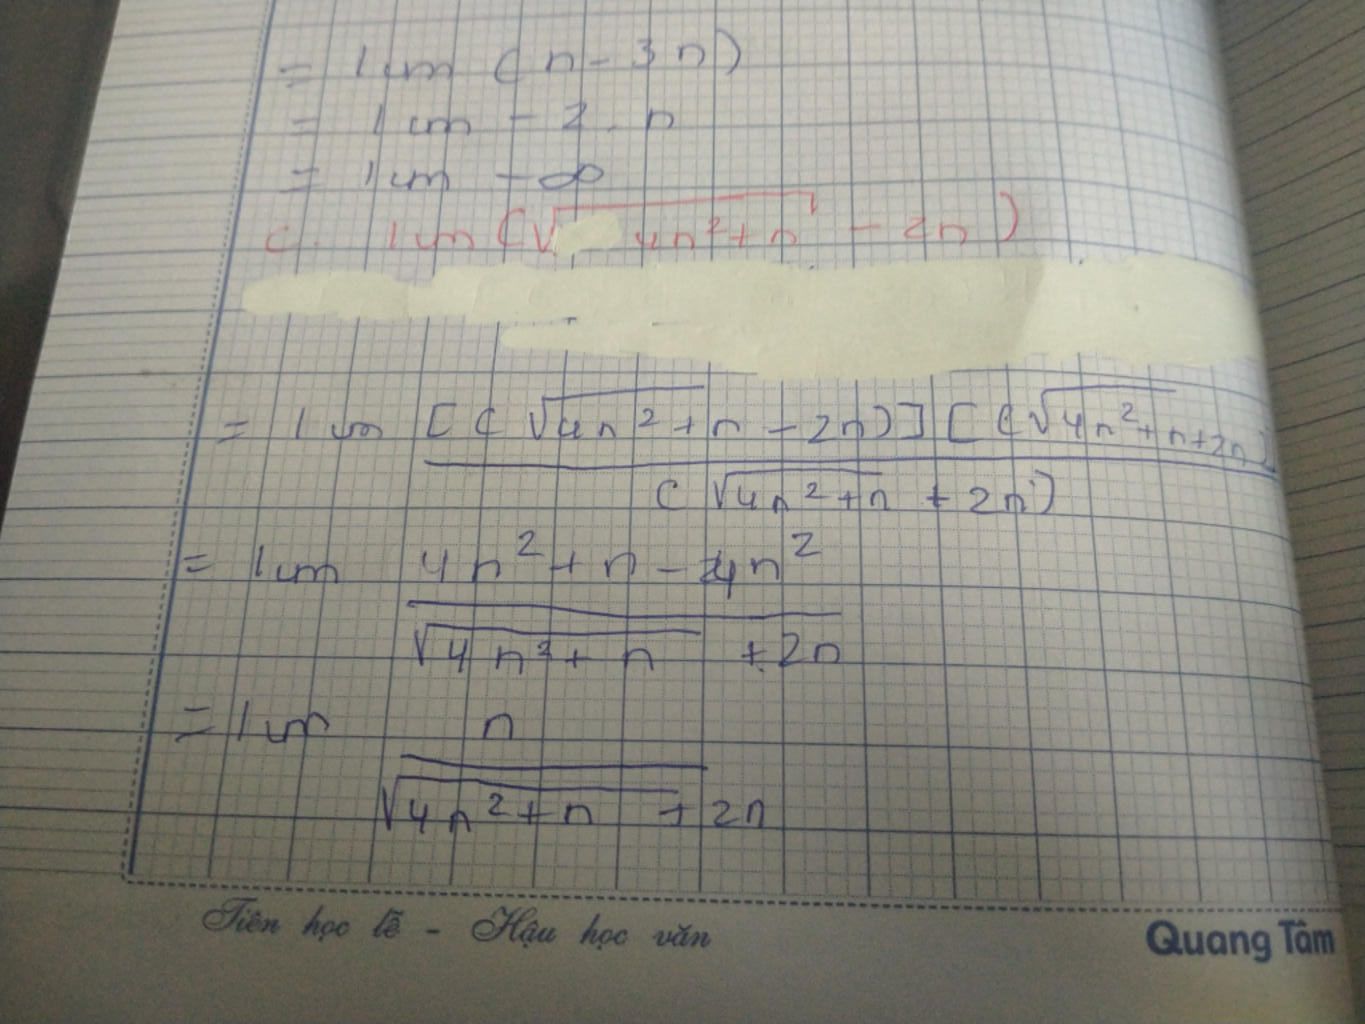 = lim (n - 3n)
= lim - 2. n
= lim - ∞
c. lim (√4n²+n - 2n)
= lim [(√4n²+n - 2n)] [(√4n²+n+2n)]
(√4n²+n + 2n)
= lim 4n²+n - 4n²
√4n²+n +2n
= lim n
√4n²+n + 2n
Tiên học lễ - Hậu học văn
Quang Tâm